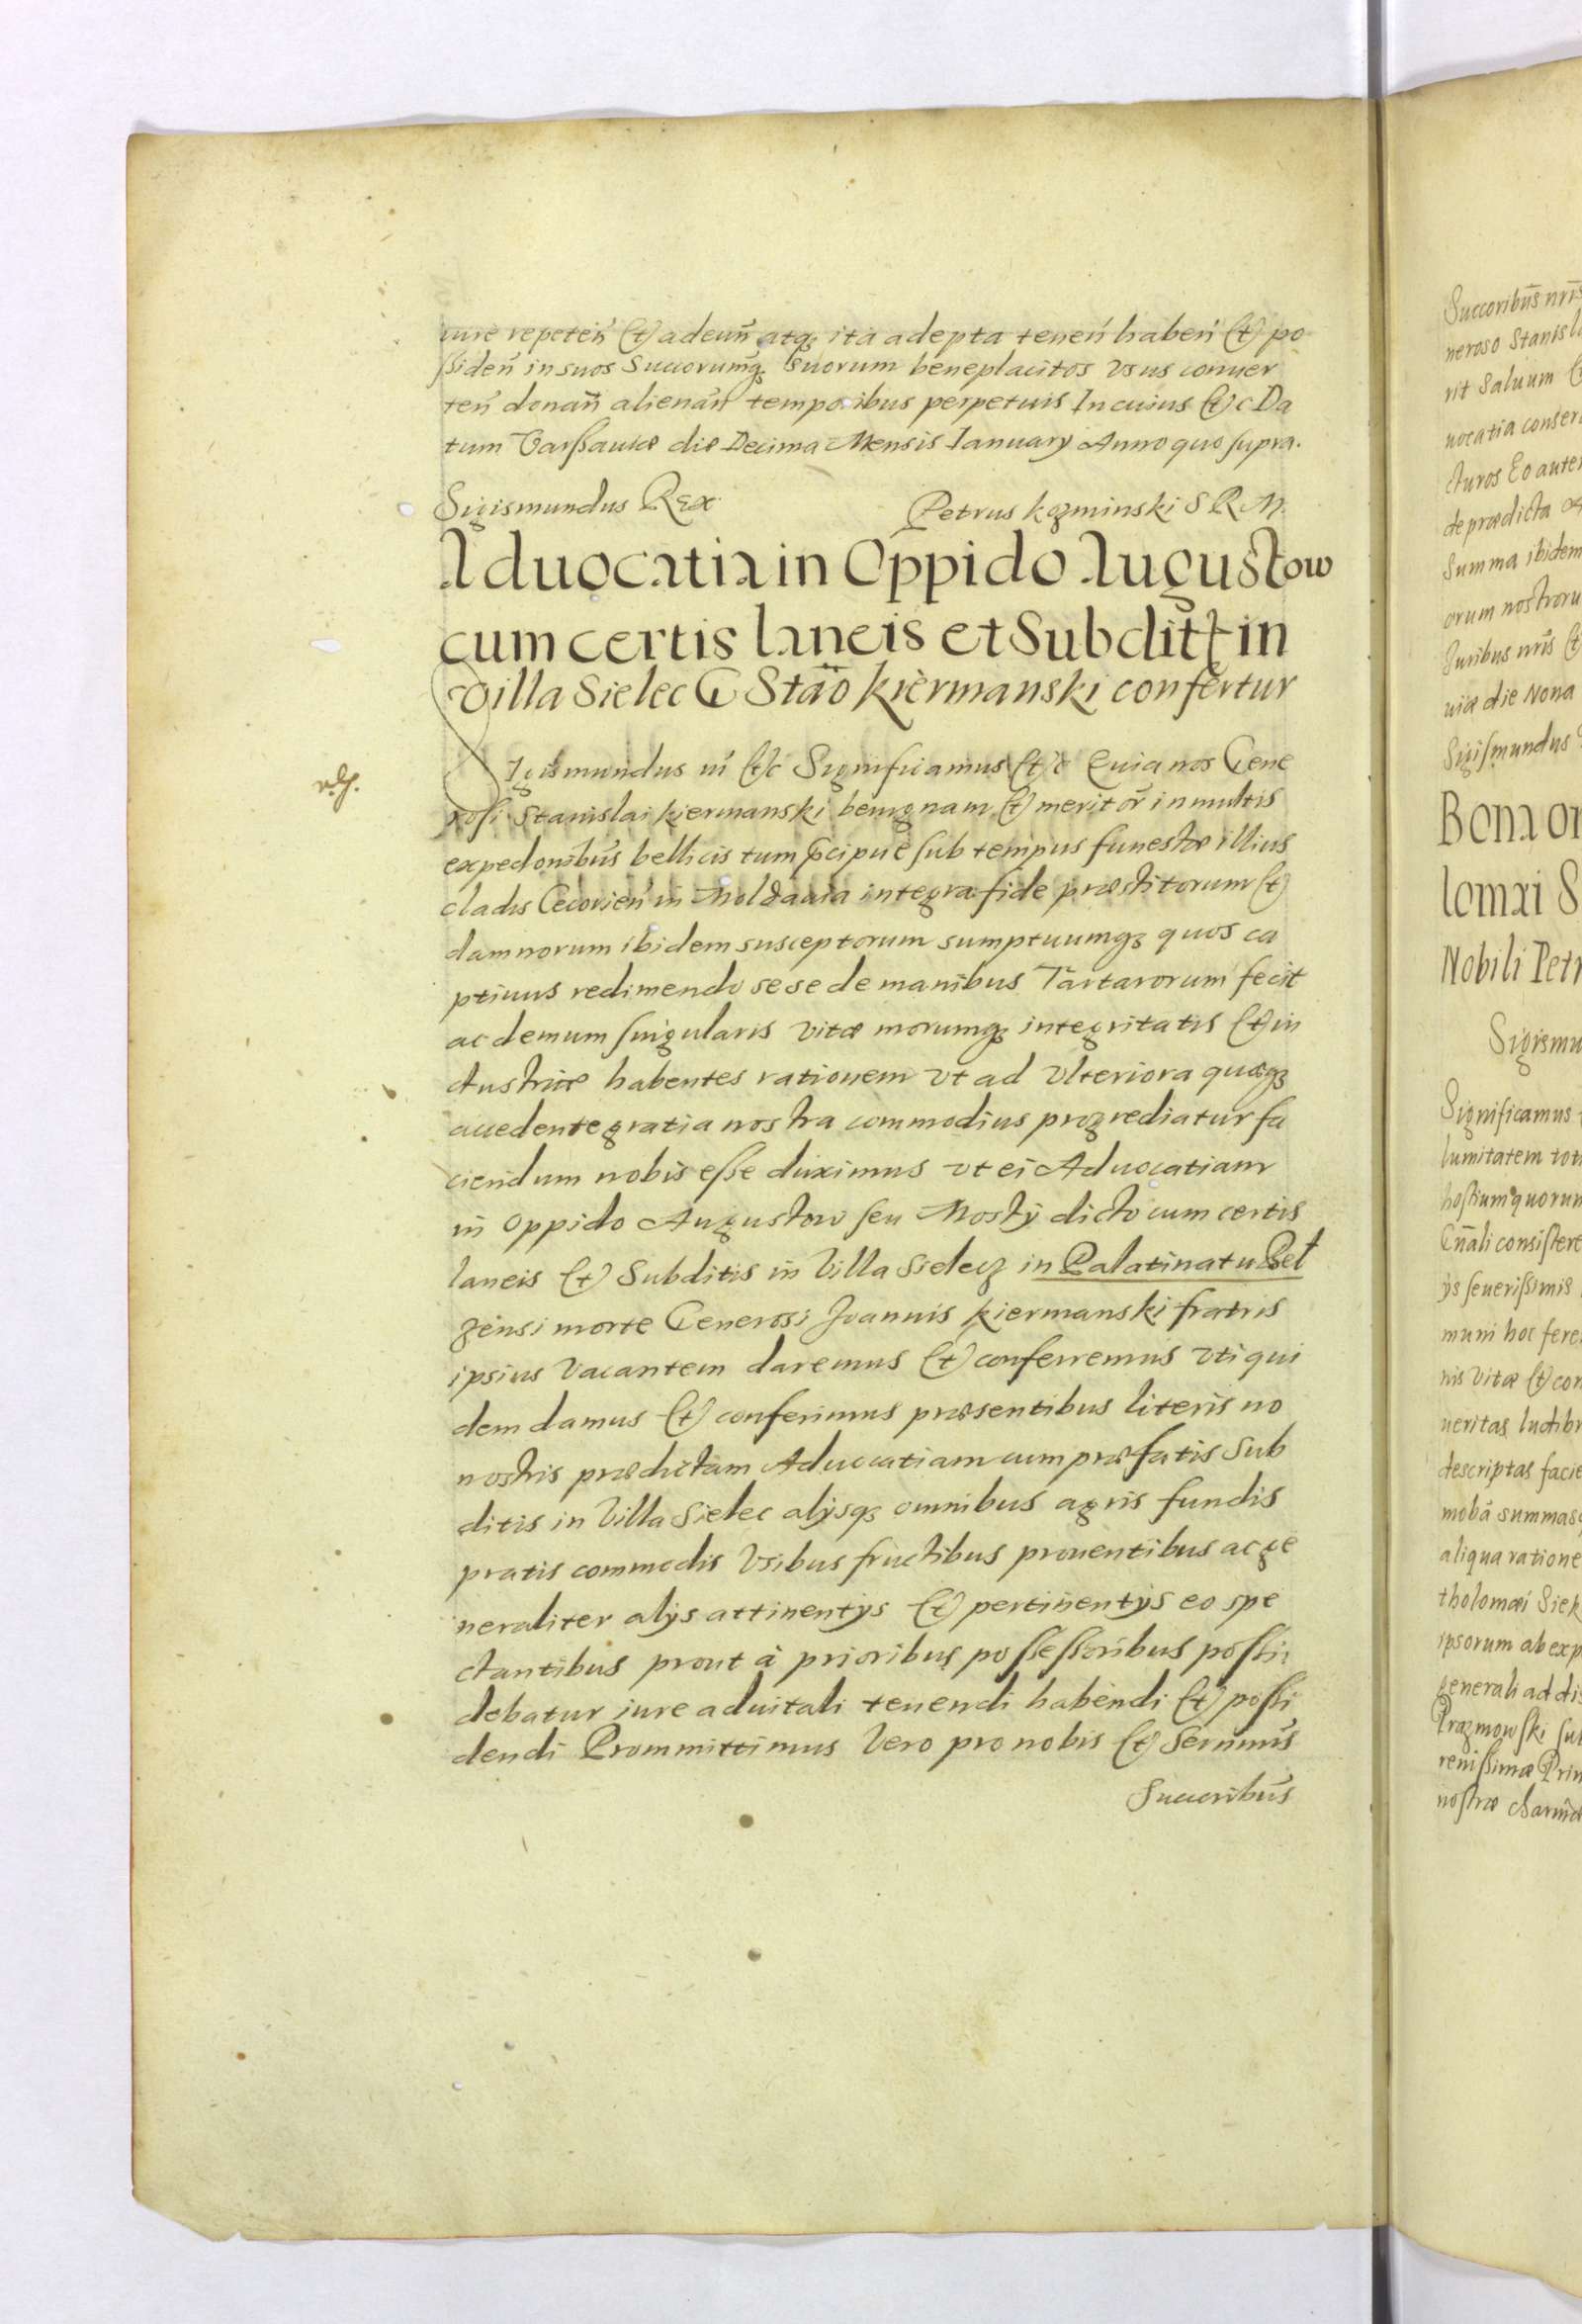 iure repeteñ (et) adeuñ atq3 ita adepta teneñ habeñ (et) po
ssideñ in suos Succorumq3 suorum beneplacitos vsus conuer
teñ donañ alienañ temporibus perpetuis In cuius (et)c Da
tum Varssauiæ die Decima Mensis Ianuary Anno quo supra.
Sigismundus Rex Petrus kozminski S R M
Aduocatia in Oppido Augustow
cum certis laneis et Subditt in
Villa Sielec G Stão kiermanski confertur
Sigismundus iii (et)c Significamus (et)c Quia nos Gene
rosi Stanislai kiermanski benignam (et) meritor̃ in multis
expedonibūs bellicis tum p̃cipue sub tempus funestæ illius
cladis Cecorień in Moldauia integra fide præstitorum (et)
damnorum ibidem susceptorum sumptuumq3 quos ca
ptiuus redimendo sese de manibus Tartarorum fecit
ac demum singularis vitæ morumq3 integritatis (et) in
dustriæ habentes rationem vt ad vlteriora quæq3
accedente gratia nostra commodius progrediatur fa
ciendum nobis esse duximus vt ei Aduocatiam
in Oppido Augustow seu Mosty dicto cum certis
laneis (et) Subditis in Villa Sielecz in Palatinatu Bel
zensi morte Generosi Joannis kiermanski fratris
ipsius vacantem daremus (et) conferremus vti qui
dem damus (et) conferimus præsentibus literis no
nostris prædictam Aduocatiam cum præfatis Sub
ditis in Villa Sielec alysq3 omnibus agris fundis
pratis commodis vsibus fructibus prouentibus ac ge
neraliter alys attinentys (et) pertinentys eo spe
ctantibus prout à prioribus possessoribus possi
debatur iure aduitali tenendi habendi (et) possi
dendi Prommittimus vero pro nobis (et) Sermūs
Succoribūs
Succoribūs nrīs
neroso Stanisl
rit Saluum
uocatia conser
cturos Eo aute
de prædicta
Summa ibidem
orum nostroru
Iuribus nrīs (et)
uiæ die Nona
Sigismundus
Bona
lomæi S
Nobili Petr
Sigismu
Significamus
lumitatem tot
hostium quorun
Gnāli consistere
ys seuerissimis
muni hoc fere
nis vitæ (et) con
ueritas ludibr
descriptas facie
mobā summas
aliqua ratione
tholomæi Siek
ipsorum ab exp
generali ad di
Prazmowski sub
renissimæ Prin
nostræ